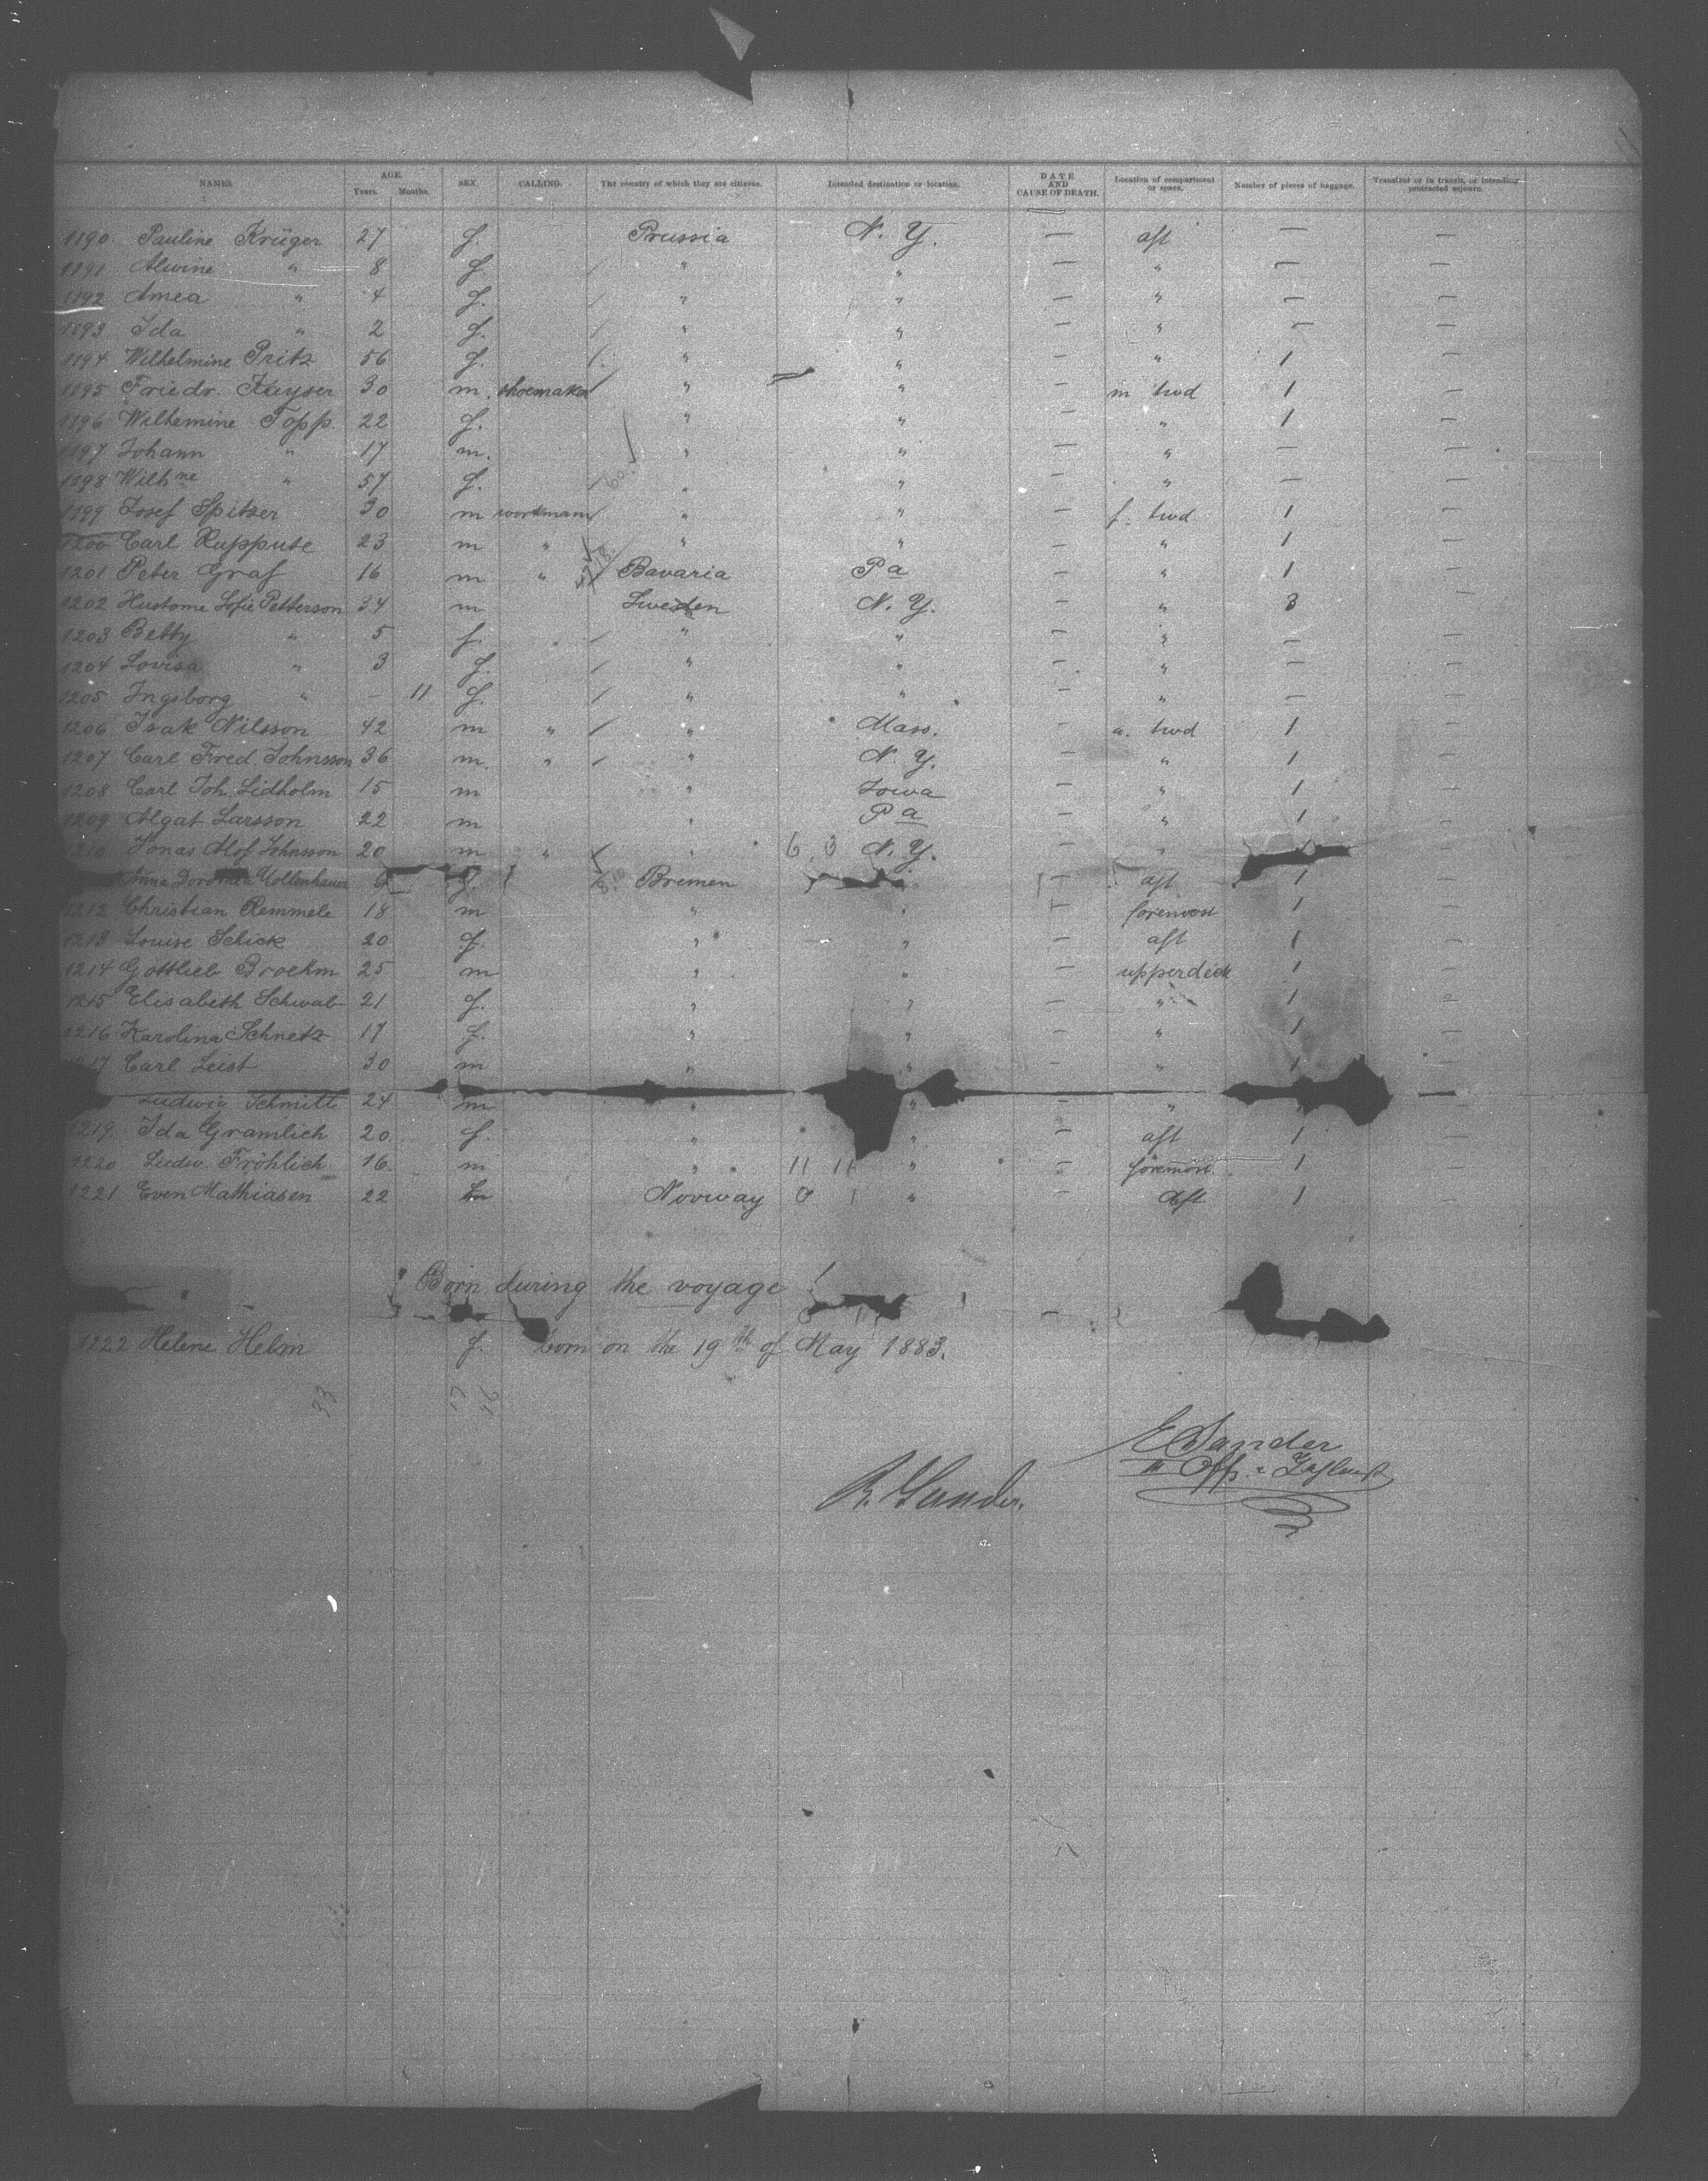 NAMES. AGE. Years. Months. SEX. CALLING. The country of which they are citizens. Intended destination or location. DATE AND CAUSE OF DEATH. Location of compartment or space. Number of pieces of baggage. Transient or in transit, or intending protracted sojourn.
1190. Pauline Krüger 27 f. Prussia N. Y. — aft — —
1191 Alwine " 8 f. " " — " — —
1192 Amea " 4 f. " " — " — —
1193 Ida " 2 f. " " — " — —
1194 Wilhelmine Pritz 56 f. " " — " 1 —
1195 Friedr. Kayser 30 m. shoemaker " " — m twd 1 —
1196 Wilhemine Topp. 22 f. " " — " 1 —
1197 Johann " 17 m. " " — " — —
1198 Wilhne " 57 f. " " — " — —
1199 Josef Spitzer 30 m workmann " " — f. twd 1 —
1200 Carl Ruppute 23 m " " " — " 1 —
1201 Peter Graf 16 m " Bavaria Pa — " 1 —
1202 Hustome Sofie Petterson 34 m Sweden N. Y. — " 3 —
1203 Betty " 5 f. " " — " — —
1204 Lovisa " 3 f. " " — " — —
1205 Ingsborg " — 11 f. " " — " — —
1206 Isak Nilsson 42 m " " Mass. — a. twd 1 —
1207 Carl Fred. Johnsson 36 m. " " N. Y. — " 1 —
1208 Carl Joh. Lidholm 15 m " Iowa — " 1 —
1209 Algat Larsson 22 m " Pa — " 1 —
1210 Jonas Alof Johnsson 20 m " " 6 3 N. Y. — "
Anna Dorothea f. Bremen — aft 1 —
1212 Christian Remmele 18 m " " — foremost 1 —
1213 Louise Schick 20 f. " " — aft 1 —
1214 Gottlieb Broehm 25 m " " — upperdeck 1 —
1215 Elisabeth Schwab 21 f. " " — " 1 —
1216 Karolina Schnetz 17 f. " " — " 1 —
1217 Carl Leist 30 m " " — " 1 —
Ludwig Schmitt 24 m " " — "
1219. Ida Gramlich 20. f. " " — aft 1 —
1220 Ludw. Fröhlich 16. m " 11 11 " — foremost 1 —
1221 Even Mathiasen 22 m Norway 0 1 " — aft 1 —
Born during the voyage
1222 Helene Helm f. born on the 19th of May 1883.
33 17 16
E Sander
III Off.
R. Sander.